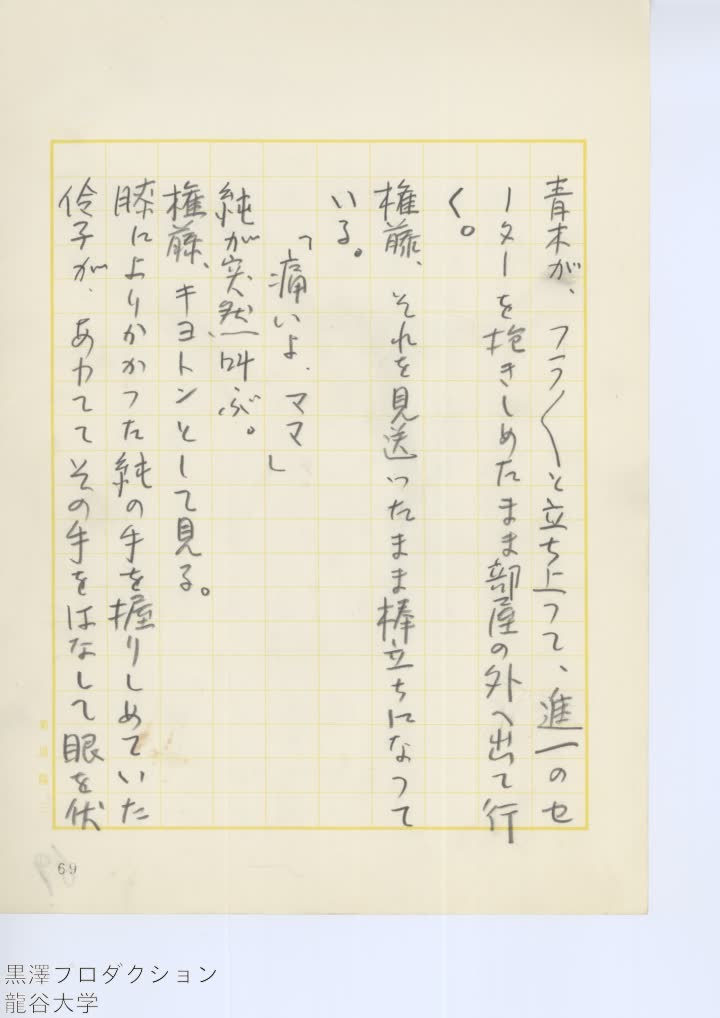 青木が、フラ〱と立ち上つて、進一のセ
ーターを抱きしめたまま部屋の外へ出て行
く。
権藤、それを見送つたまま棒立ちになつて
いる。
「痛いよ、ママ」
純が突然叫ぶ。
権藤、キヨトンとして見る。
膝によりかかつた純の手を握りしめていた
伶子が、あわててその手をはなして眼を伏
69
黒澤プロダクション
龍谷大学